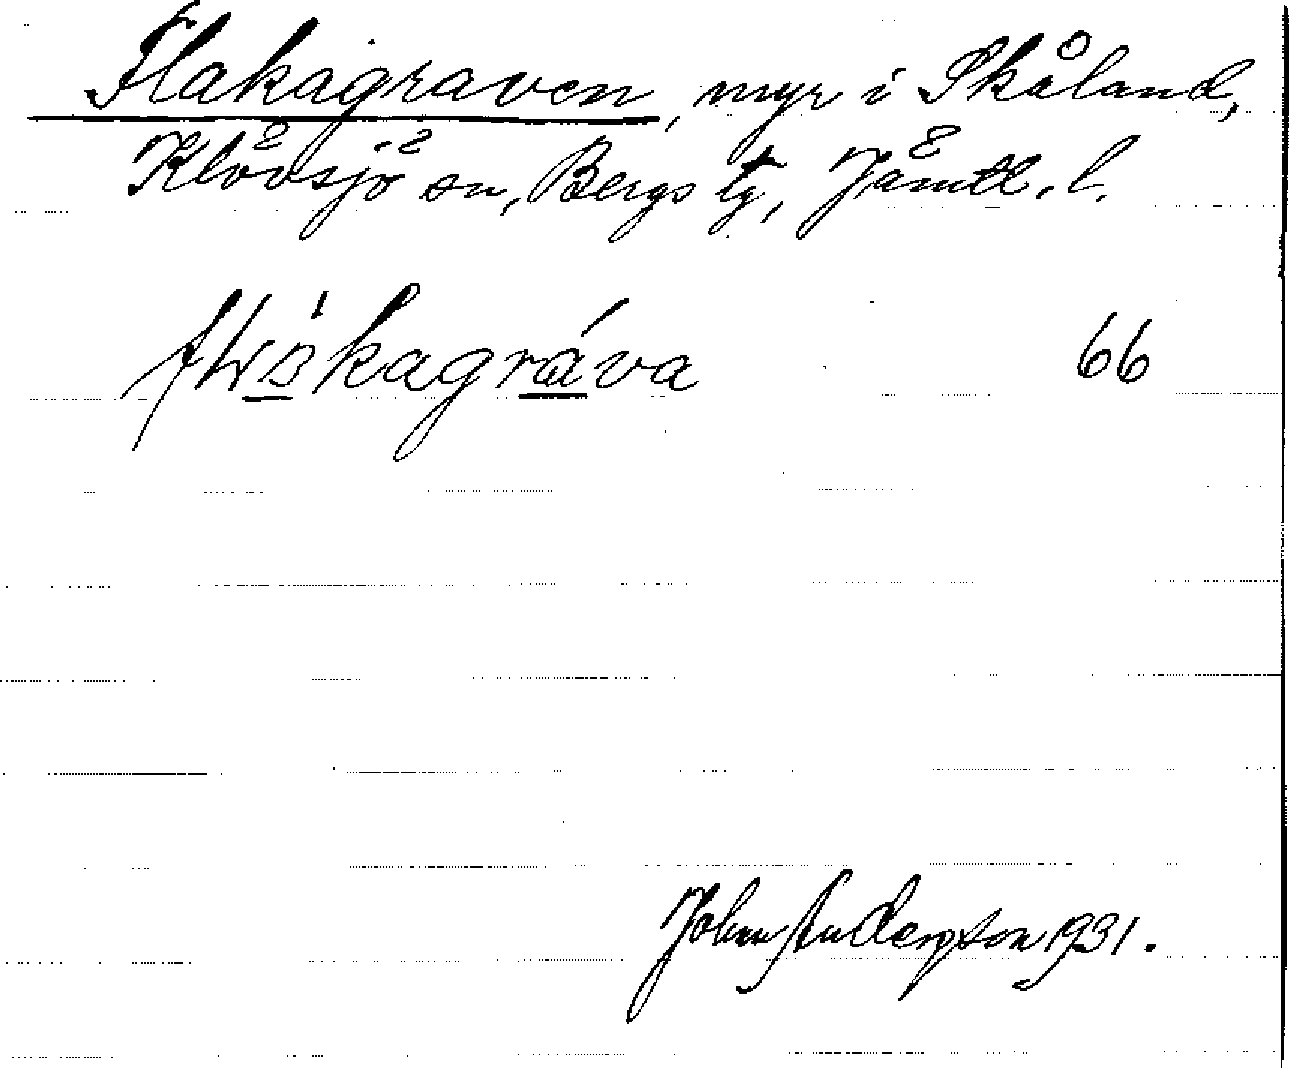 Flakagraven, myr i Skåland,
Klövsjö sn, Bergs tg, Jämtl. l.
66
John Andersson 1931.